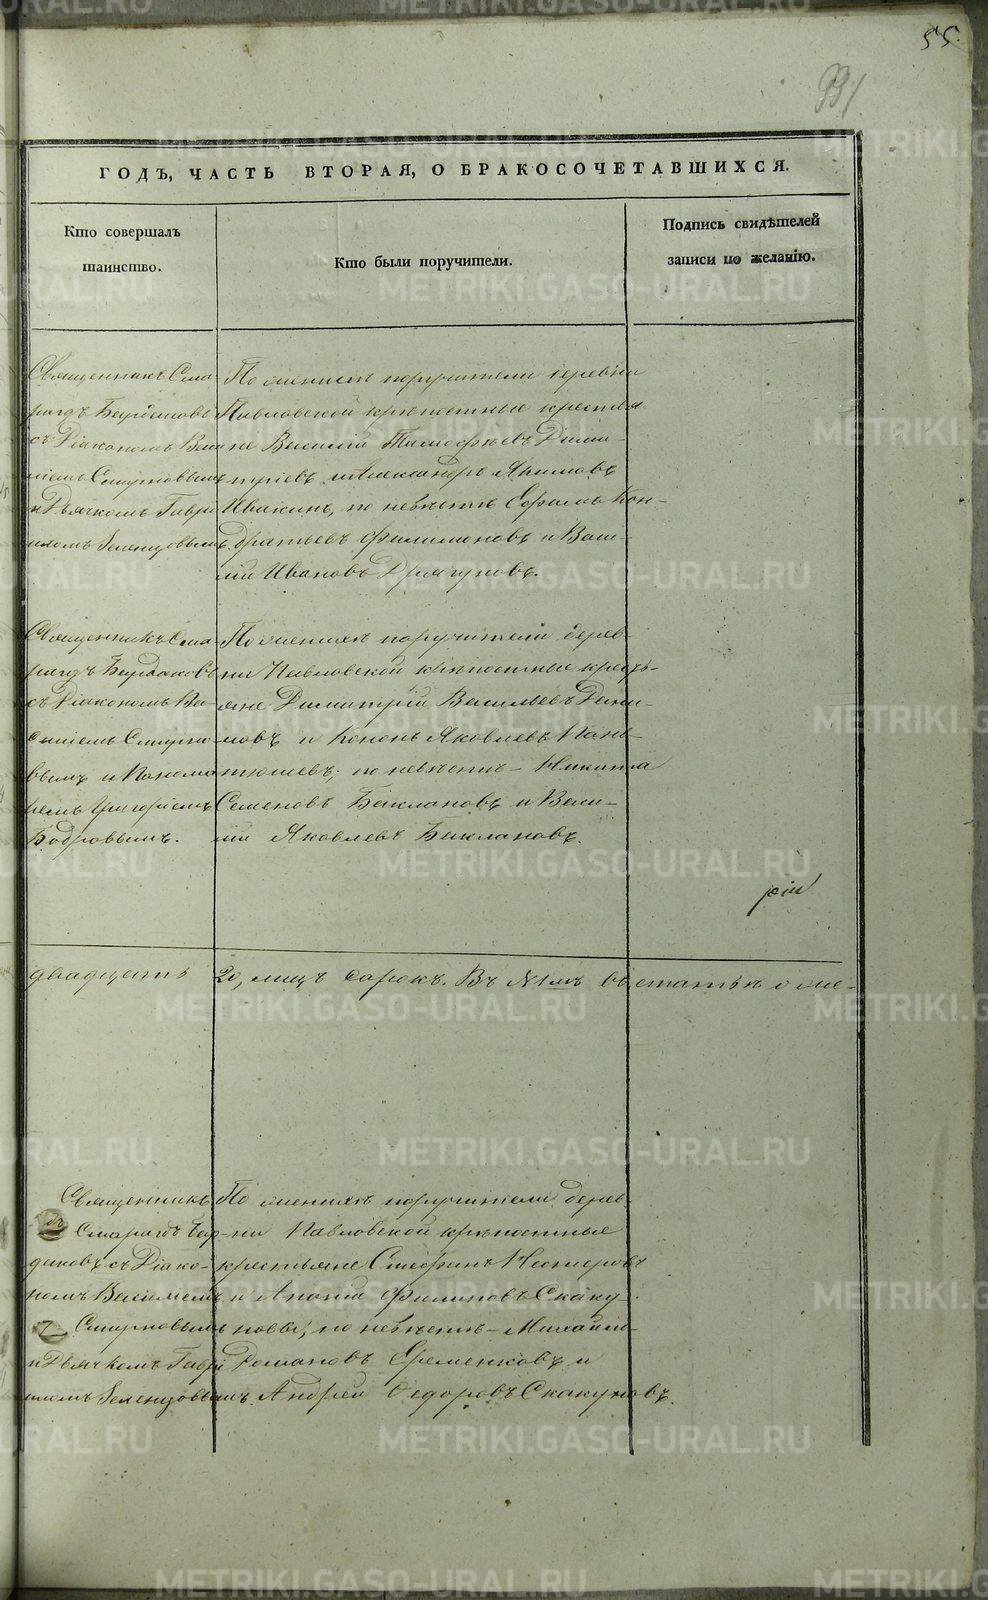 55.
ГОДЪ, ЧАСТЬ ВТОРАЯ, О БРАКОСОЧЕТАВШИХСЯ.
Кто совершалъ
таинство.
Кто были поручители.
Подпись свидѣтелей
записи по желанію.
Священникъ Сма-
рагдъ Бардаковъ
съ Діакономъ Васи
ліемъ Смирновымъ
и Дьячкомъ Гаври
иломъ Зеленцовымъ
По женихѣ поручители деревни
Павловской крѣпостные крестья
не Василій Тимофѣевъ Дими-
тріевъ и Александръ Якимовъ
по невѣстѣ Ефимъ Кон-
дратьевъ Филимоновъ и Васи-
лій Ивановъ Драгуновъ.
Священникъ Сма-
рагдъ Бардаковъ
съ Діакономъ Ва-
силіемъ Смирно-
вымъ и Понома
ремъ Григоріемъ
Бодровымъ.
По женихѣ поручители дерев-
ни Павловской крѣпостные кресть-
яне Димитрій Васильевъ Дани-
ловъ и Кононъ Яковлевъ Пань-
тюшевъ; по невѣстѣ - Никита
Семеновъ Баклановъ и Васи-
лій Яковлевъ Баклановъ.
двадцать 20, лицъ сорокъ. Въ № 1мъ въ статьѣ о же-
Священникъ
Смарагдъ Бар-
даковъ съ Діако-
номъ Василіемъ
Смирновымъ
и Дьячкомъ Гаврі
иломъ Зеленцовымъ.
По женихѣ поручители дерев-
ни Павловской крѣпостные
крестьяне Стефанъ Нестеровъ
и Филиповъ Скаку-
новы, по невѣстѣ - Михаилъ
Романовъ Еременковъ и
Андрей Ѳедоровъ Скакуновъ.
METRIKI.GASO-URAL.RU